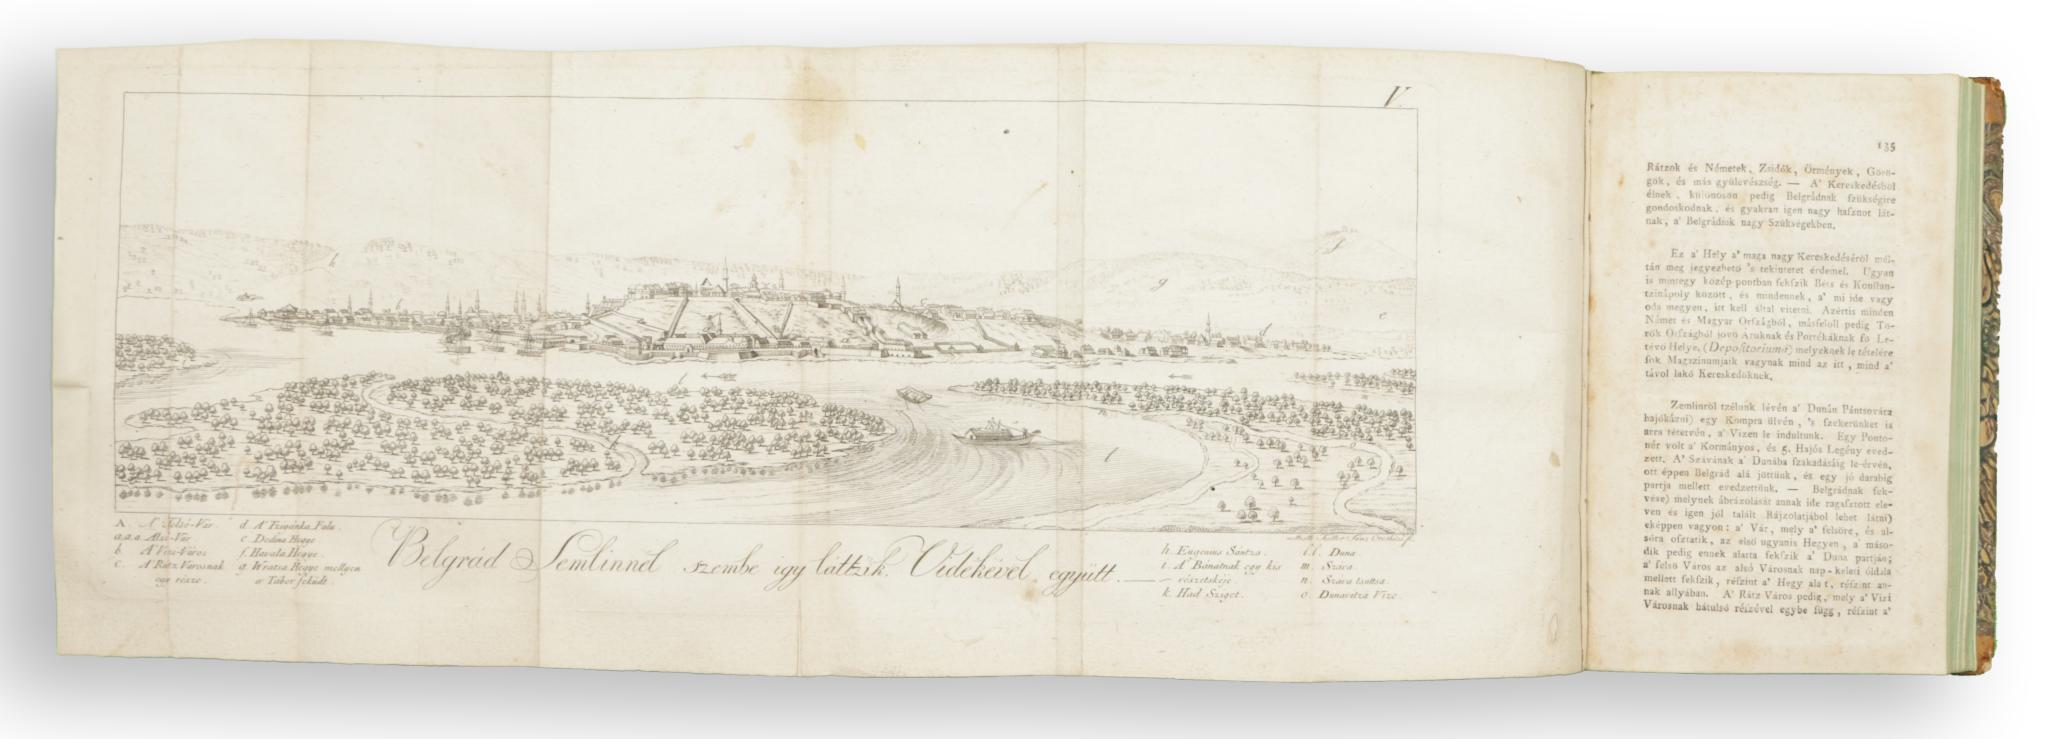 V.
A. A' Felső-Vár.
a.a.a. Alsó-Vár
b. A' Vizi-Város
c. A' Rátz Városnak
egy része.
d. A' Tzigánka Falu.
e. Dedina Hegye
f. Havala Hegye.
g. Wratsa Hegye mellyen
a' Tábor feküdt.
Belgrád Semlinnel szembe igy láttzik, Vidékével együtt.
h. Eugenius Sántza.
i. A' Bánátnak egy kis
részetskéje.
k. Had Sziget.
l.l. Duna.
m. Száva.
n. Száva tsuttsa.
o. Dunavitza Vize.
135
Rátzok és Németek, Zsidók, Örmények, Görö-
gök, és más gyülevészség. — A' Kereskedésből
élnek, különösön pedig Belgrádnak szükségire
gondoskodnak, és gyakran igen nagy hasznot lát-
nak, a' Belgrádiak nagy Szükségekben.
Ez a' Hely a' maga nagy Kereskedéséről mél-
tán meg jegyezhető 's tekintetet érdemel. Ugyan
is mintegy közép-pontban fekszik Béts és Konstan-
tzinápoly között, és mindennek, a' mi ide vagy
oda megyen, itt kell által vitetni. Azértis minden
Német és Magyar Országból, másfelöll pedig Tö-
rök Országból jövő Áruknak és Portékáknak fő Le-
tévő Helye, (Depositoriuma) melyeknek le tételére
sok Magazinumjaik vagynak mind az itt, mind a'
távol lakó Kereskedőknek.
Zemlinről tzélunk lévén a' Dunán Pántsovára
hajókázni) egy Kompra ülvén, 's szekerünket is
arra tétetvén, a' Vizen le indultunk. Egy Ponto-
nér volt a' Kormányos, és 5. Hajós Legény eved-
zett. A' Szávának a' Dunába szakadásáig le-érvén,
ott éppen Belgrád alá jöttünk, és egy jó darabig
partja mellett evedzettünk. — Belgrádnak fek-
vése) melynek ábrázolását annak ide ragasztott ele-
ven és igen jól talált Rájzolatjából lehet látni)
eképpen vagyon: a' Vár, mely a' felsőre, és al-
sóra osztatik, az első ugyanis Hegyen, a' máso-
dik pedig ennek alatta fekszik a' Duna partján;
a' felső Város az alsó Városnak nap-keleti óldala
mellett fekszik, részint a' Hegy alatt, részint an-
nak allyában. A' Rátz Város pedig, mely a' Vizi
Városnak hátulsó részével egybe függ, részint a'